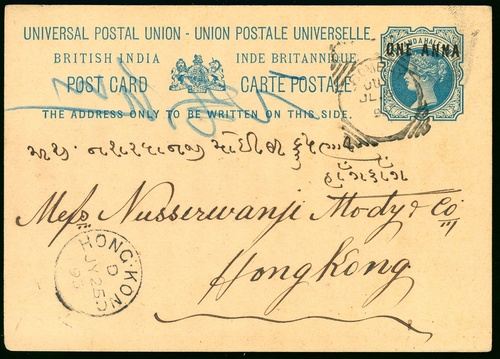 UNIVERSAL POSTAL UNION - UNION POSTALE UNIVERSELLE.
BRITISH INDIA INDE BRITANNIQUE
POST CARD CARTE POSTALE
THE ADDRESS ONLY TO BE WRITTEN ON THIS SIDE.
ONE ANNA
હાંગકાંગ
Messs Nusserwanji Mody & Co
Hong Kong
HONG-KON
D
JY 25